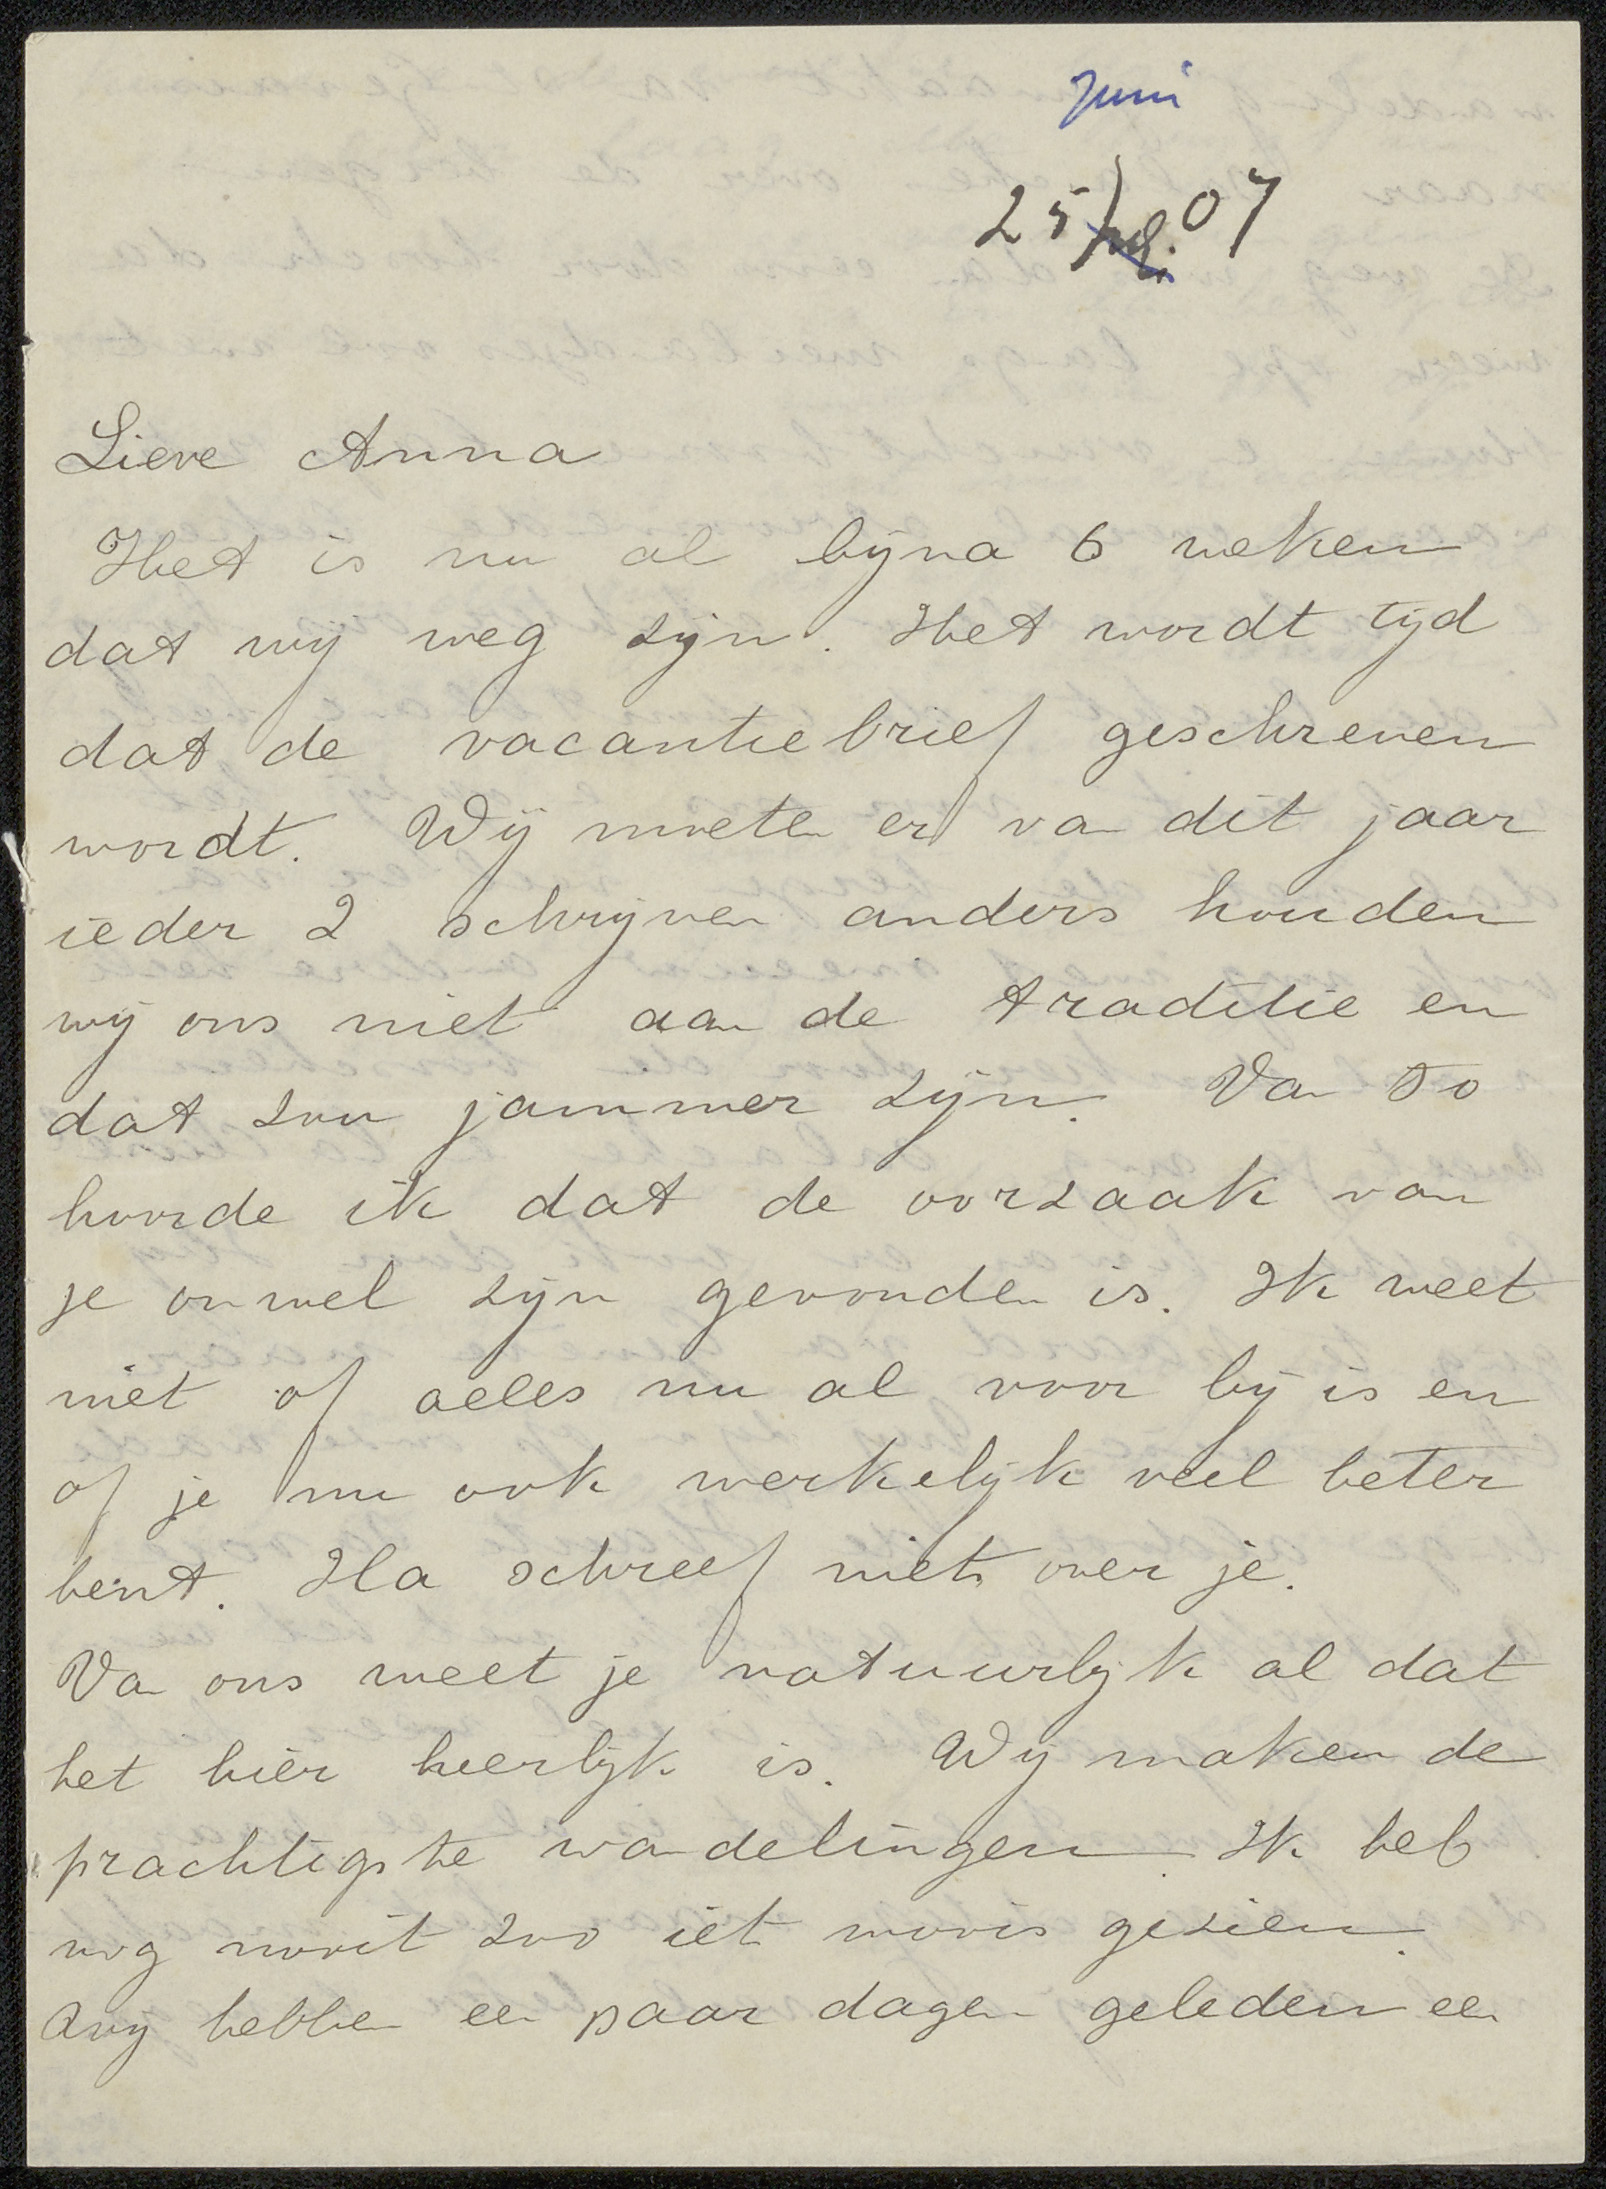 Juni
25 Juli. 07
Lieve Anna
Het is nu al bijna 6 weken
dat wij weg zijn. Het wordt tijd
dat de vacantiebrief geschreven
wordt. Wij moeten er van dit jaar
ieder 2 schrijven anders houden
wij ons niet aan de traditie en
dat zou jammer zijn. Van To
hoorde ik dat de oorzaak van
je onwel zijn gevonden is. Ik weet
niet of alles nu al voor bij is en
of je nu ook werkelijk veel beter
bent. Ha schreef niets over je.
Van ons weet je natuurlijk al dat
het hier heerlijk is. Wij maken de
prachtigste wandelingen. Ik heb
nog nooit zoo iets moois gezien.
Wij hebben een paar dagen geleden een